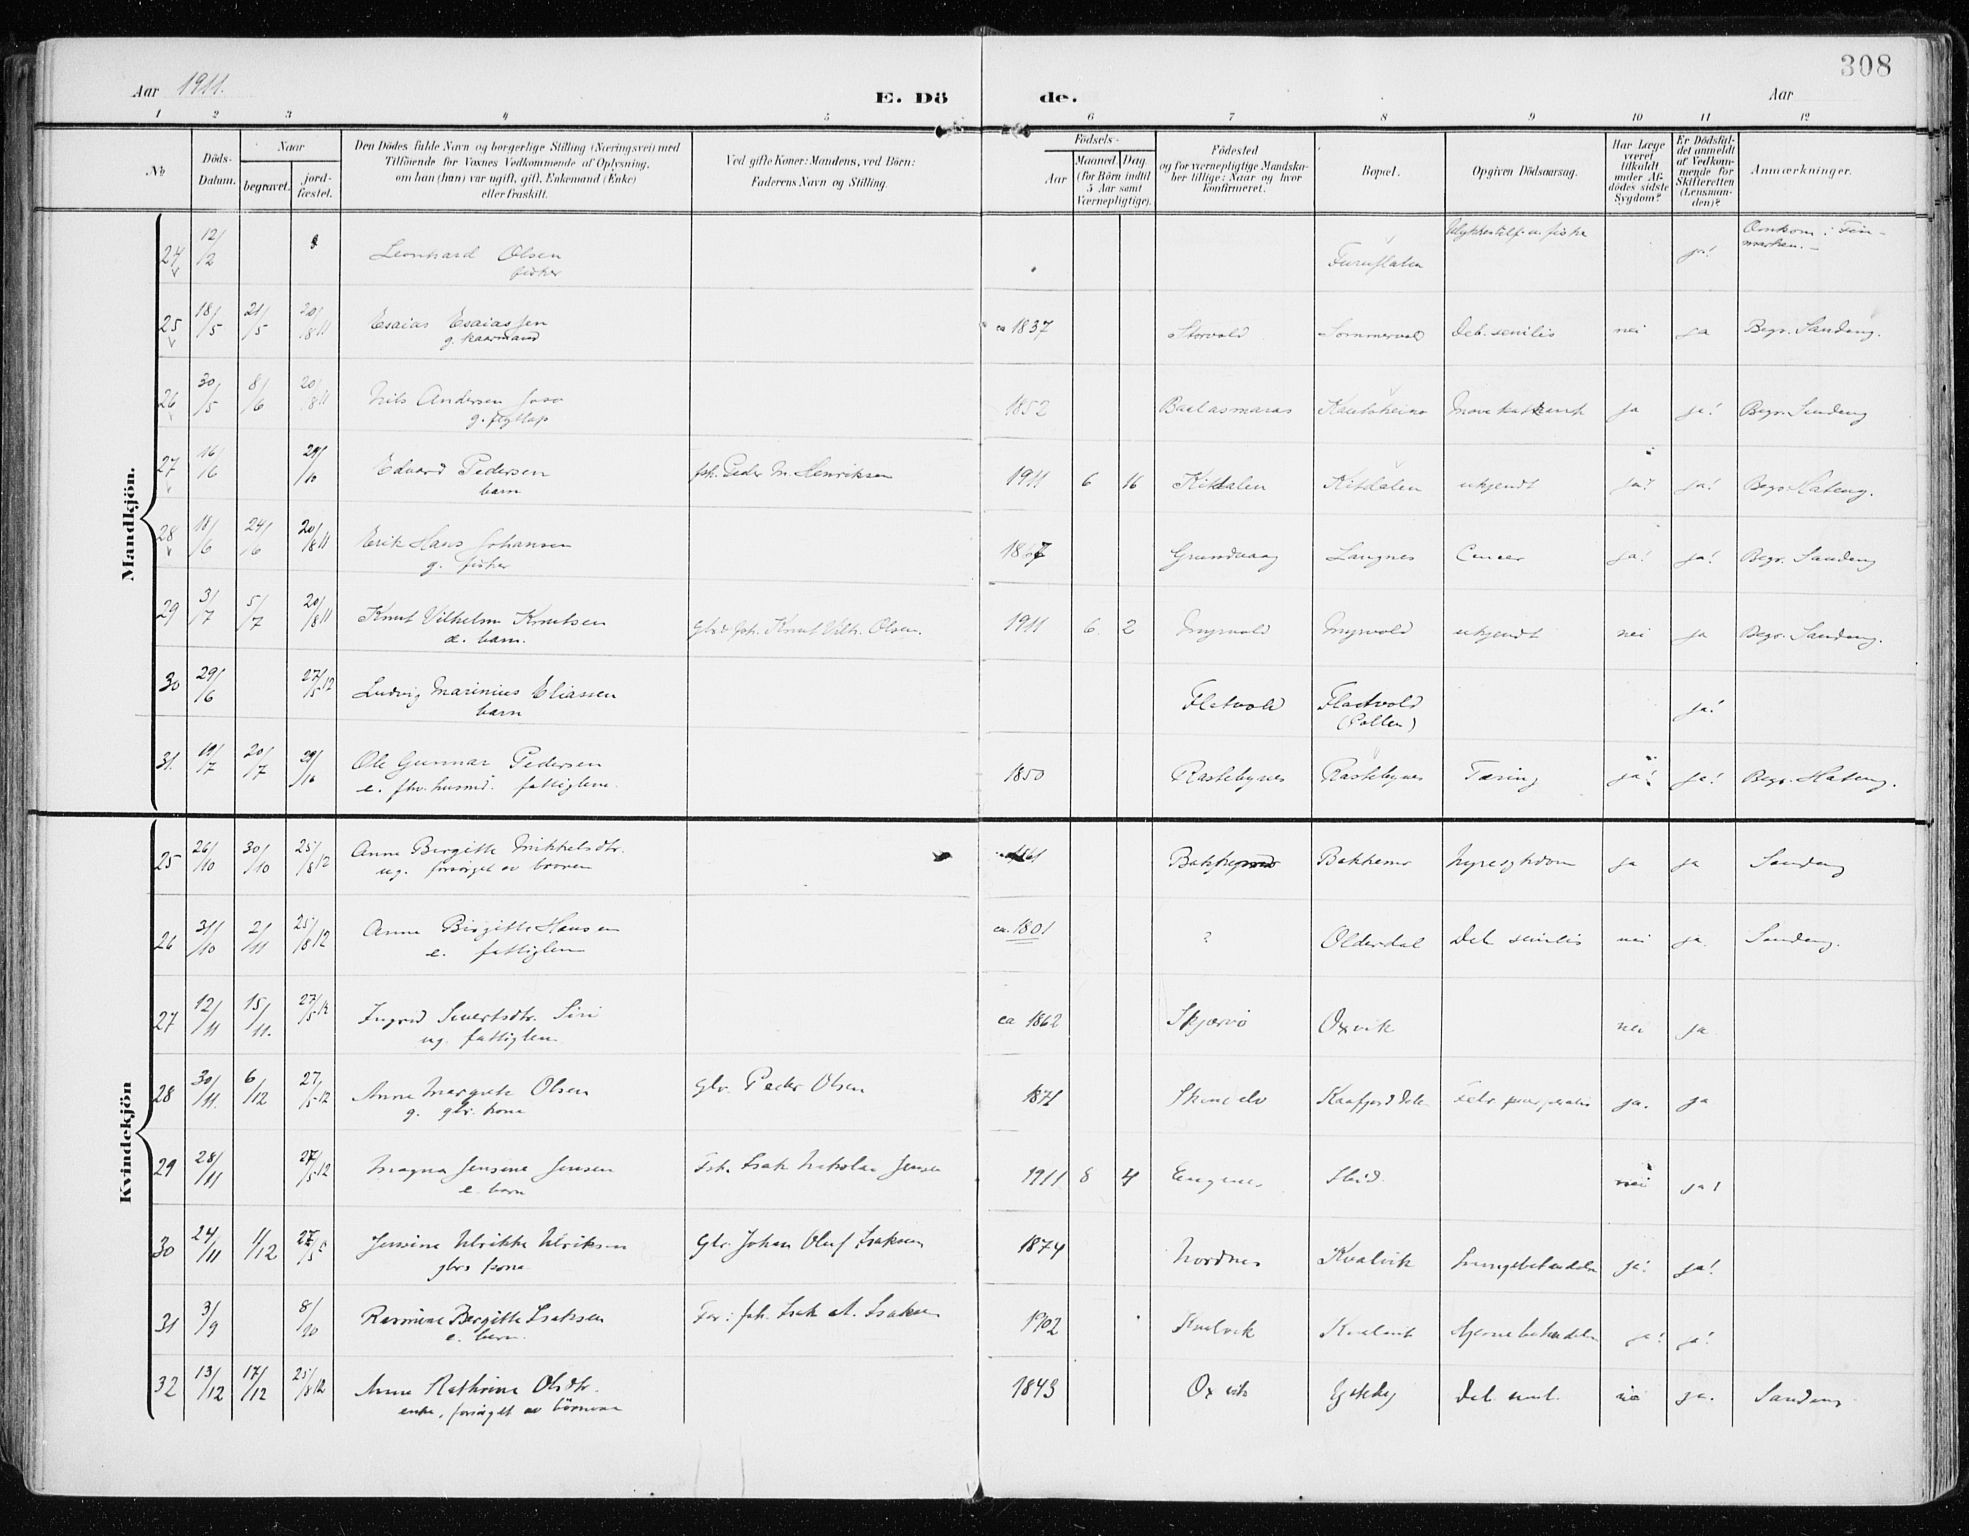 308
Aar 1911.
E. Dö de.
Aar
1 2 3 4 5 6 7 8 9 10 11 12
No
Döds-Datum.
Naar
begravet.
jord-fæstet.
Den Dödes fulde Navn og borgerlige Stilling (Næringsvei) med
Tilföiende for Voxnes Vedkommende af Oplysning,
om han (hun) var ugift, gift, Enkemand (Enke)
eller fraskilt.
Ved gifte Koner: Mandens, ved Börn:
Faderens Navn og Stilling.
Födsels-
Aar
Maaned. Dag.
(for Börn indtil
5 Aar samt
Værnepligtige).
Födested
og for værnepligtige Mandska-
ber tillige: Naar og hvor
konfirmeret.
Bopæl.
Opgiven Dödsaarsag.
Har Læge
været
tilkaldt
under Af-
dödes sidste
Sygdom?
Er Dödsfal-
det anmeldt
af Vedkom-
mende for
Skifteretten
(Lensman-
den)?
Anmærkninger.
Mandkjön.
24 12/2 Leonhard Olsen Furuflaten ja! Omkom i Fin-
fisker marken.
25 18/5 21/5 20/8 11 Esaias Esaiassen ca 1837 Storvold Sommervold Deb. senilis nei ja Begr. Sandeng.
g. kaarmand
26 30/5 8/6 20/8 11 Nils Andersen 1852 Kautokeino ja ja! Begr. Sandeng
g. flytlap
27 16/6 29/10 Edvard Pedersen fsk. Peder M. Henriksen 1911 6 16 Kitdalen Kitdalen ukjendt ja? ja! Begr. Hateng.
barn
28 18/6 24/6 20/8 11 Erik Hans Johansen 1867 Grundvaag Langnes Cancer ja! ja! Begr. Sandeng
g. fisker
29 3/7 5/7 20/8 11 Knut Vilhelm Knutsen Knut Vilh. Olsen. 1911 6 2 Myrvold Myrvold ukjendt nei ja Begr. Sandeng.
barn.
30 29/6 27/5 12 Ludvig Marinius Eliassen Flatvold Flatvold ja!
barn (Pollen)
31. 19/7 20/7 29/10 Ole Gunnar Pedersen 1850 Rastebynes Rastebynes Tæring ja! ja! Begr. Hateng.
e. fhv. husmd. fattiglem.
Kvindekjön
25 26/10 30/10 25/8 12 Anne Birgitte Mikkelsdtr. 1861 Bakkemo nyresygdom ja ja Sandeng
ug. forsörget av broren
26 31/10 2/11 25/8 12 Anne Birgitte Hansen ca. 1801 ? Olderdal Deb. senilis nei ja Sandeng.
e. fattiglem
27 12/11 15/11. 27/5 12 Ingrid Sivertsdtr. Siri ca 1862 Skjærvö Oxvik nei ja
ug. fattiglem
28 30/11. 6/12 27/5 12 Anne Margrete Olsen Gbr. Peder Olsen 1871 Kaafjorddalen Febr. puerperalis ja. ja
g. gbr. kone
29 28/11 27/5 12 Magna Jensine Jensen Fsk. Isak Nikolai Jensen 1911 8 4 nei ja!
e. barn
30 24/11 1/12 27/5 Jensine Ulrikke Ulriksen Gbr. Johan Oluf Isaksen 1874 Nordnes Kvalvik Lungebetændelse ja! ja!
gbrs kone
31 3/9 8/10 Rasmine Bergitte Isaksen Far: fsk. Isak A. Isaksen 1902 Kvalvik Kvalvik Hjernebetændelse ja! ja!
e. barn.
32 13/12 17/12 25/8 12 Anne Kathrine Olsdtr. 1843 Oxvik Deb. senil. nei ja. Sandeng
enke, forsörget av börnene